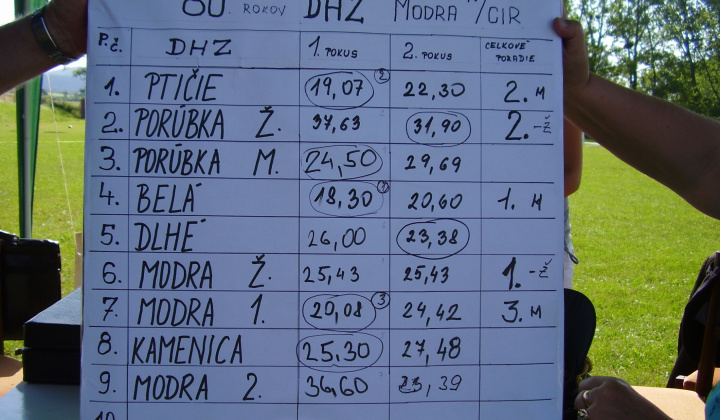 80. ROKOV DHZ MODRA N/CIR
P.č. DHZ 1. POKUS 2. POKUS CELKOVÉ PORADIE
1. PTIČIE 19,07 2 22,30 2. M
2. PORÚBKA Ž. 37,63 31,90 2. -Ž
3. PORÚBKA M. 24,50 29,69
4. BELÁ 18,30 1 20,60 1. M
5. DLHÉ 26,00 23,38
6. MODRA Ž. 25,43 25,43 1. -Ž
7. MODRA 1. 20,08 3 24,42 3. M
8. KAMENICA 25,30 27,48
9. MODRA 2. 36,60 ,39
10